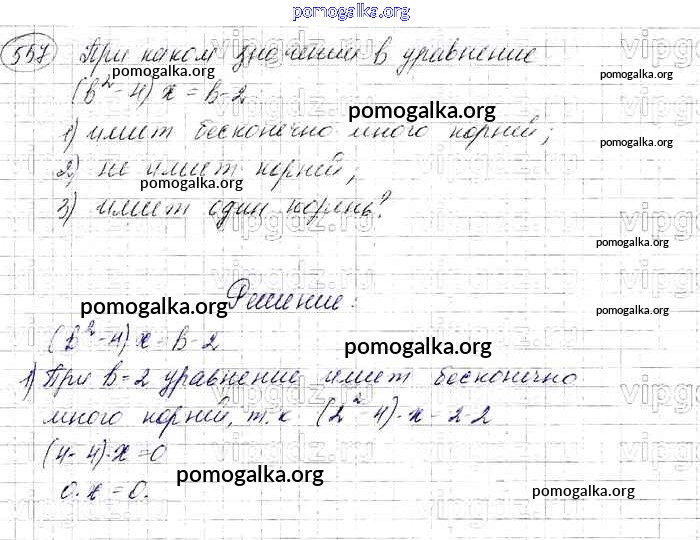 pomogalka.org
557) При каком значении в уравнение
pomogalka.org
(в² - 4) х = в - 2
pomogalka.org
1) имеет бесконечно много корней;
2) не имеет корней;
pomogalka.org
3) имеет один корень?
pomogalka.org
Решение:
pomogalka.org
(в² - 4) х = в - 2
pomogalka.org
1) При в = 2 уравнение имеет бесконечно
много корней, т.к (2² - 4) · х = 2 - 2
(4 - 4) · х = 0
pomogalka.org
0 · х = 0.
pomogalka.org